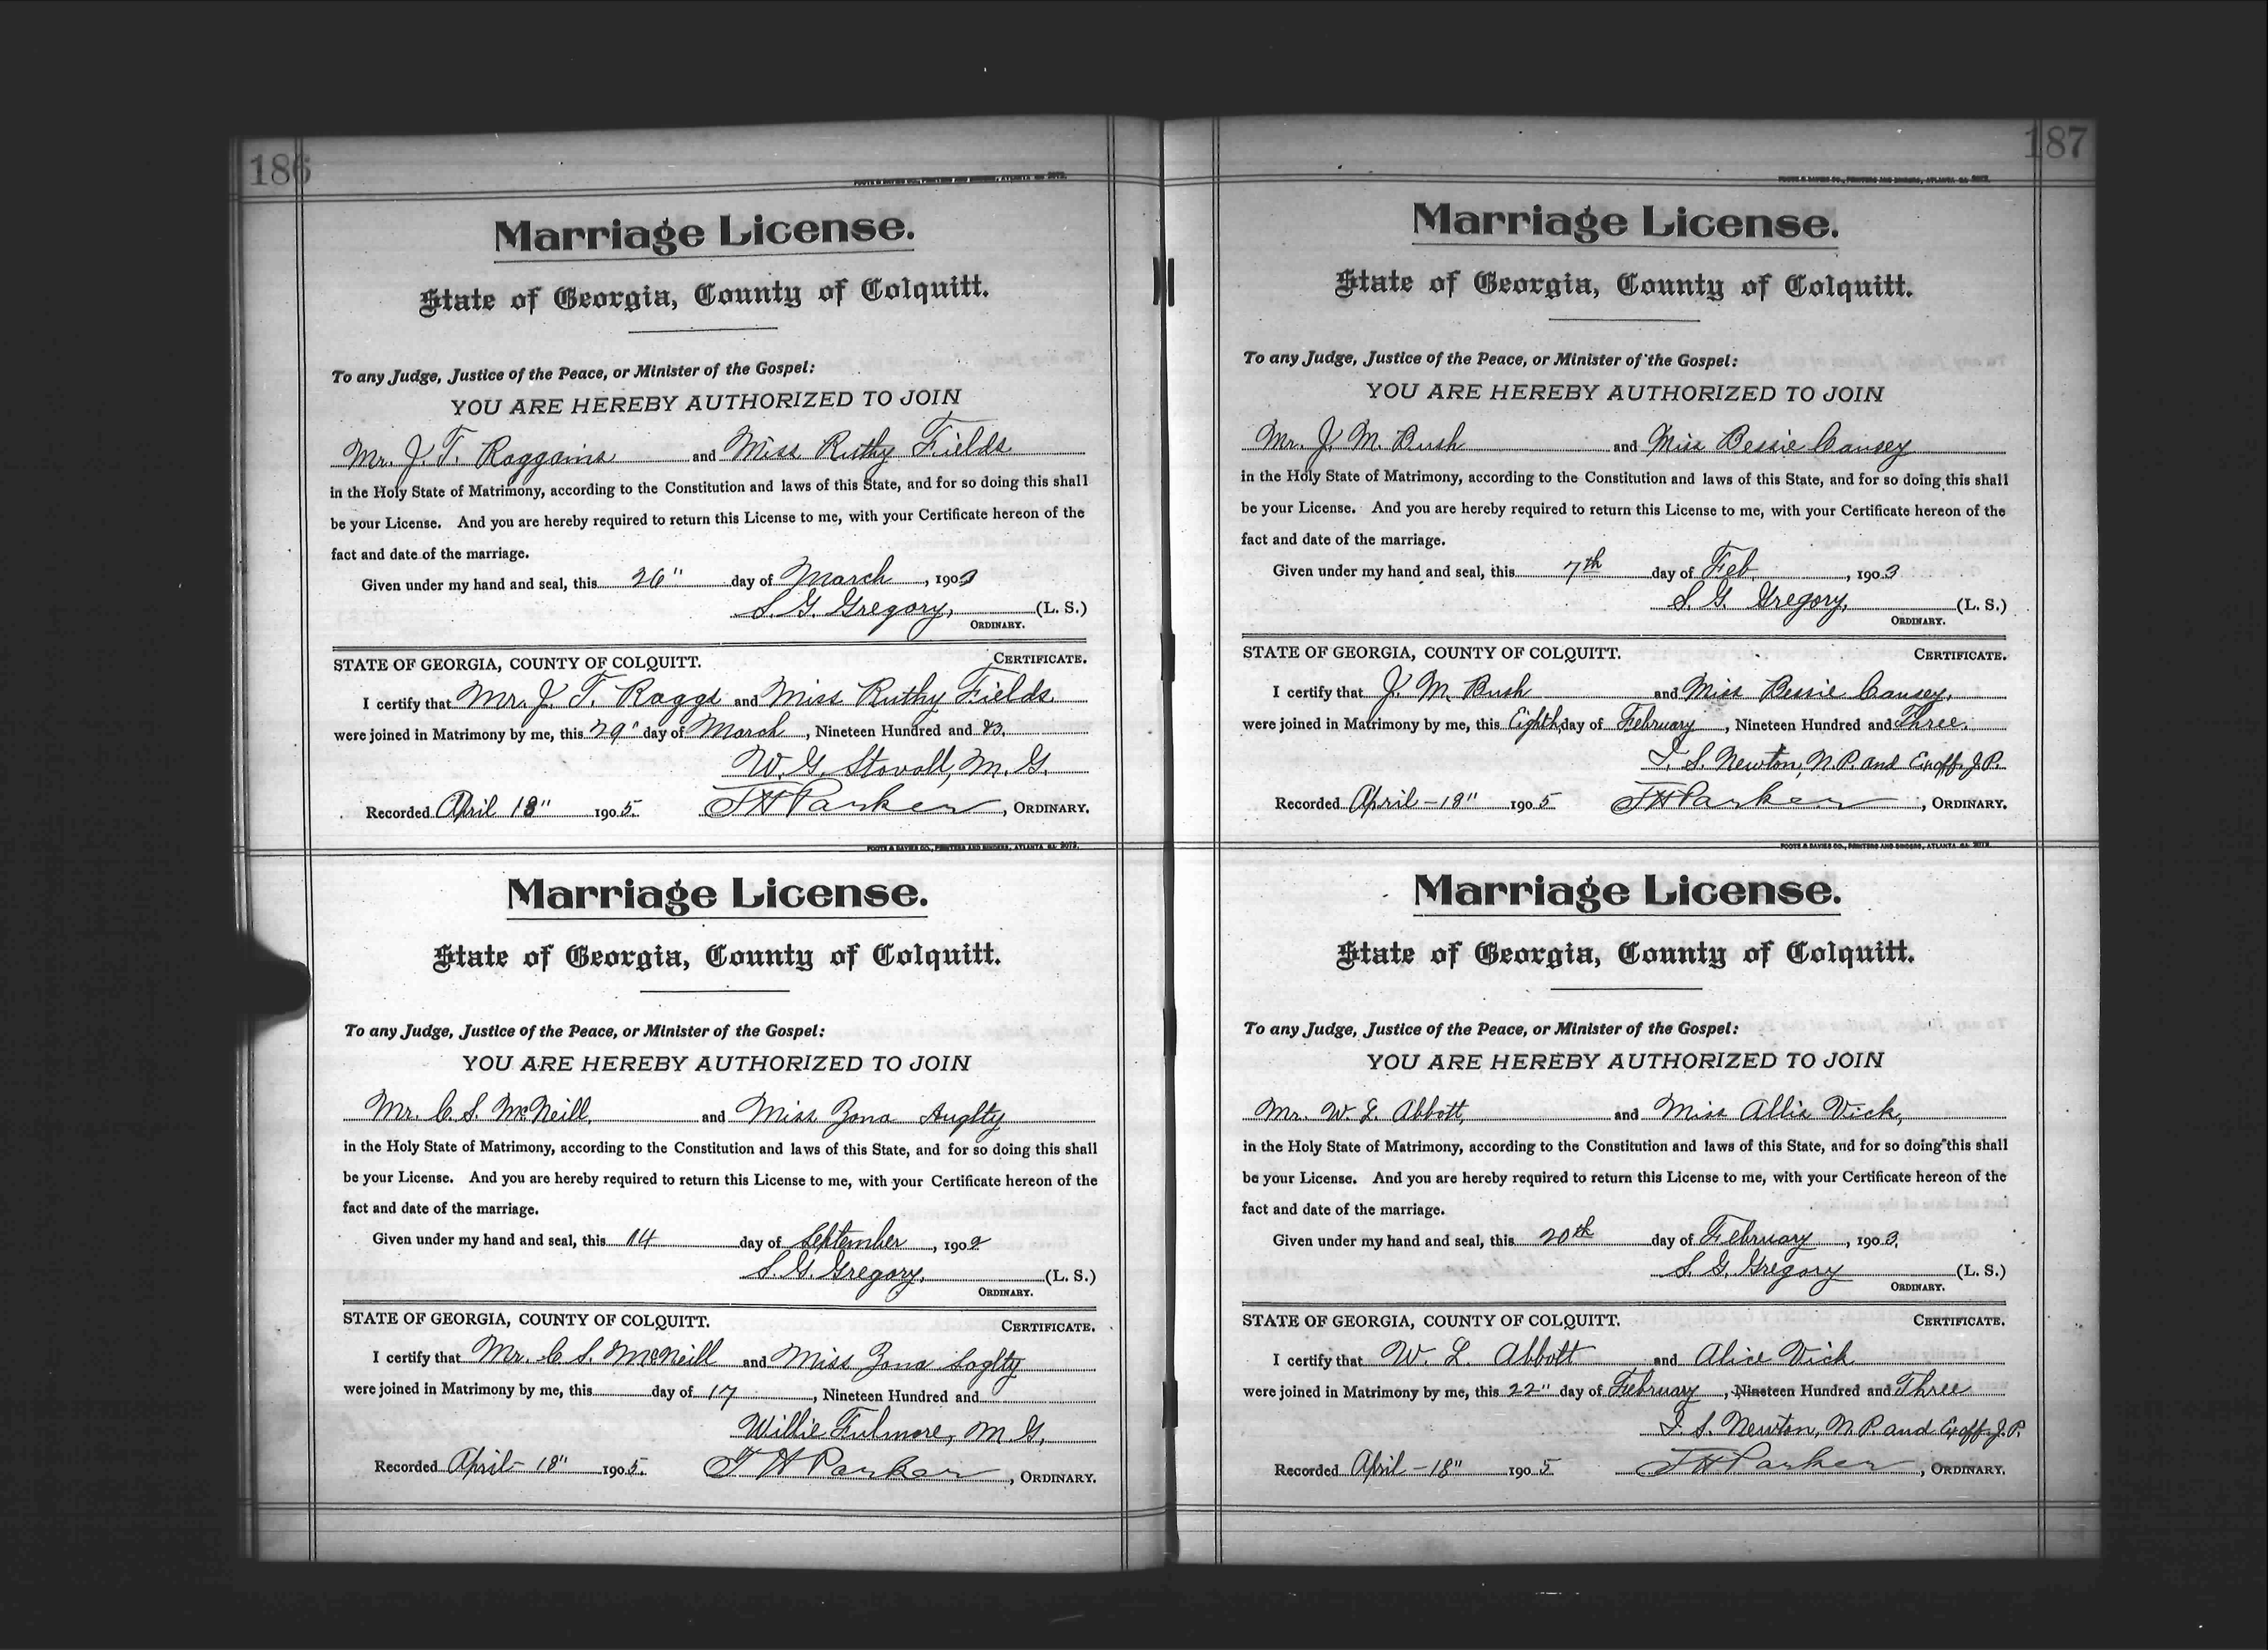 186
FOOTE & DAVIES CO., PRINTERS AND BINDERS, ATLANTA GA 2072.
Marriage License.
State of Georgia, County of Colquitt.
To any Judge, Justice of the Peace, or Minister of the Gospel:
YOU ARE HEREBY AUTHORIZED TO JOIN
Mr. J. T. Raggains and Miss Ruthy Fields
in the Holy State of Matrimony, according to the Constitution and laws of this State, and for so doing this shall
be your License. And you are hereby required to return this License to me, with your Certificate hereon of the
fact and date of the marriage.
Given under my hand and seal, this 26" day of March, 190
S. G. Gregory, (L. S.)
ORDINARY.
STATE OF GEORGIA, COUNTY OF COLQUITT. CERTIFICATE.
I certify that Mr. J. T. Raggs and Miss Ruthy Fields
were joined in Matrimony by me, this 29" day of March, Nineteen Hundred and 03.
W. G. Stovall, M. G.
Recorded April 18" 1905. J H Parker, ORDINARY.
FOOTE & DAVIES CO., PRINTERS AND BINDERS, ATLANTA GA 2072.
Marriage License.
State of Georgia, County of Colquitt.
To any Judge, Justice of the Peace, or Minister of the Gospel:
YOU ARE HEREBY AUTHORIZED TO JOIN
Mr. C. S. McNeill, and Miss Zona Auglty
in the Holy State of Matrimony, according to the Constitution and laws of this State, and for so doing this shall
be your License. And you are hereby required to return this License to me, with your Certificate hereon of the
fact and date of the marriage.
Given under my hand and seal, this 14 day of September, 1902
S. G. Gregory, (L. S.)
ORDINARY.
STATE OF GEORGIA, COUNTY OF COLQUITT. CERTIFICATE.
I certify that Mr. C. S. McNeill and Miss Zona Saglty
were joined in Matrimony by me, this day of 17, Nineteen Hundred and
Willie Fulmore, M. G.
Recorded April- 18" 1905. J H Parker, ORDINARY.
187
FOOTE & DAVIES CO., PRINTERS AND BINDERS, ATLANTA GA 2072.
Marriage License.
State of Georgia, County of Colquitt.
To any Judge, Justice of the Peace, or Minister of the Gospel:
YOU ARE HEREBY AUTHORIZED TO JOIN
Mr. J. M. Bush and Miss Bessie Causey
in the Holy State of Matrimony, according to the Constitution and laws of this State, and for so doing this shall
be your License. And you are hereby required to return this License to me, with your Certificate hereon of the
fact and date of the marriage.
Given under my hand and seal, this 7th day of Feb, 1903
S. G. Gregory, (L. S.)
ORDINARY.
STATE OF GEORGIA, COUNTY OF COLQUITT. CERTIFICATE.
I certify that J. M. Bush and Miss Bessie Causey,
were joined in Matrimony by me, this Eighth day of February, Nineteen Hundred and Three.
I. S. Newton, N.P. and Exoff. J.P.
Recorded April - 18" 1905 J H Parker, ORDINARY.
FOOTE & DAVIES CO., PRINTERS AND BINDERS, ATLANTA GA 2072.
Marriage License.
State of Georgia, County of Colquitt.
To any Judge, Justice of the Peace, or Minister of the Gospel:
YOU ARE HEREBY AUTHORIZED TO JOIN
Mr. W. L. Abbott, and Miss Allis Vick,
in the Holy State of Matrimony, according to the Constitution and laws of this State, and for so doing this shall
be your License. And you are hereby required to return this License to me, with your Certificate hereon of the
fact and date of the marriage.
Given under my hand and seal, this 20th day of February, 1903.
S. G. Gregory (L. S.)
ORDINARY.
STATE OF GEORGIA, COUNTY OF COLQUITT. CERTIFICATE.
I certify that W. L. Abbott and Alice Vick
were joined in Matrimony by me, this 22" day of February, Nineteen Hundred and Three
I. S. Newton, N.P. and Exoff. J.P.
Recorded April - 18" 1905 J H Parker, ORDINARY.